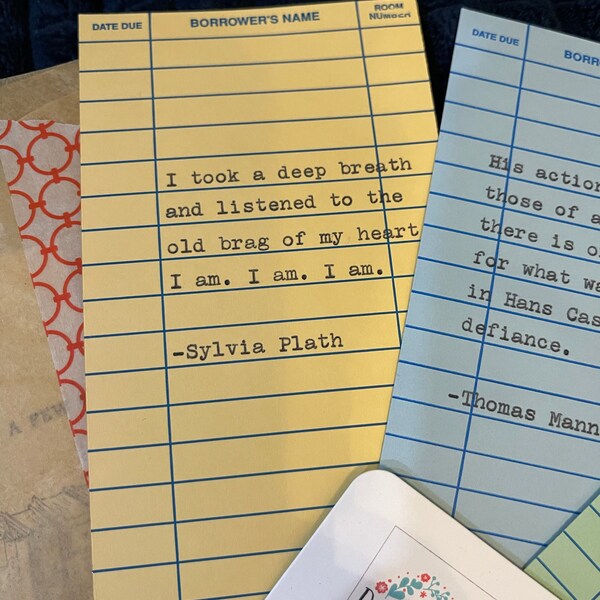 DATE DUE
BORROWER'S NAME
ROOM
NUMBER
I took a deep breath
and listened to the
old brag of my heart
I am. I am. I am.
-Sylvia Plath
DATE DUE
His
those of a
there is
for what
in Hans
defiance.
-Thomas Mann
A FEW